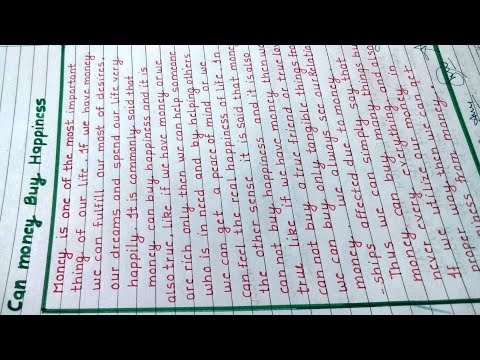 Can money Buy Happiness
Money is one of the most important
thing of our life. If we have money
we can fulfill our most of desires,
our dreams and spend our life very
happily. It is commonly said that
money can buy happiness and it is
also true. Like if we have money or we
are rich only then we can help someone
who is in need and by helping others
we can get a peace of mind or we
can feel the real happiness of life. In
the other sense it is said that money
can not buy happiness and it is also
true. Like if we have money then we
can not buy a true friend or true love
we can buy only tangible things from
money. we always see our Relation
ships effected due to money
Thus we can simply say that
money can buy many things but
never every thing and also
If we utilize our money in
proper way then we can get
happiness from money